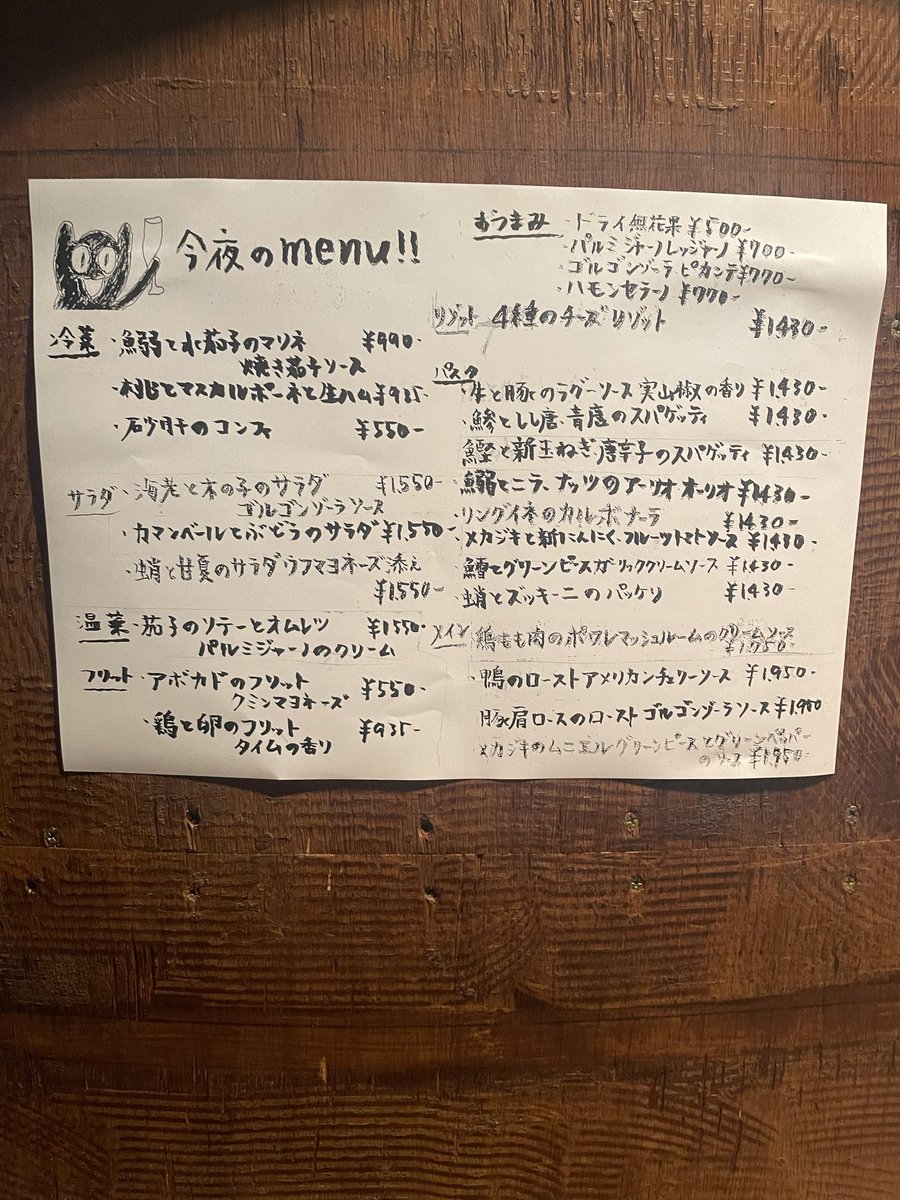 今夜のmenu!!
冷菜 ・鰯と水茄子のマリネ ¥990-
焼き茄子ソース
・桃とマスカルポーネと生ハム ¥935-
・砂肝のコンフィ ¥550-
サラダ ・海老と木の子のサラダ ¥1,550-
ゴルゴンゾーラソース
・カマンベールとぶどうのサラダ ¥1,550-
・蛸と甘夏のサラダ ウフマヨネーズ添え
¥1550-
温菜 ・茄子のソテーとオムレツ ¥1550-
パルミジャーノのクリーム
フリット ・アボカドのフリット ¥550-
クミンマヨネーズ
・鶏と卵のフリット ¥935-
タイムの香り
おつまみ ・ドライ無花果 ¥500-
・パルミジャーノレッジャーノ ¥700-
・ゴルゴンゾーラ ピカンテ ¥770-
・ハモンセラーノ ¥770-
リゾット 4種のチーズリゾット ¥1430-
パスタ
・牛と豚のラグーソース 実山椒の香り ¥1,430-
・鯵としし唐、青唐のスパゲッティ ¥1,430-
・鰹と新玉ねぎ、唐辛子のスパゲッティ ¥1,430-
・鰯とニラ、ナッツのアーリオオーリオ ¥1430-
・リングイネのカルボナーラ ¥1430-
・メカジキと新にんにく、フルーツトマトソース ¥1430-
・鱈とグリーンピースガーリッククリームソース ¥1430-
・蛸とズッキーニのパッケリ ¥1430-
メイン ・鶏もも肉のポワレマッシュルームのクリームソース
¥1,950-
・鴨のローストアメリカンチェリーソース ¥1,950-
・豚肩ロースのロースト ゴルゴンゾーラソース ¥1,950
・メカジキのムニエルグリーンピースとグリーンペッパー
のソース ¥1,950-